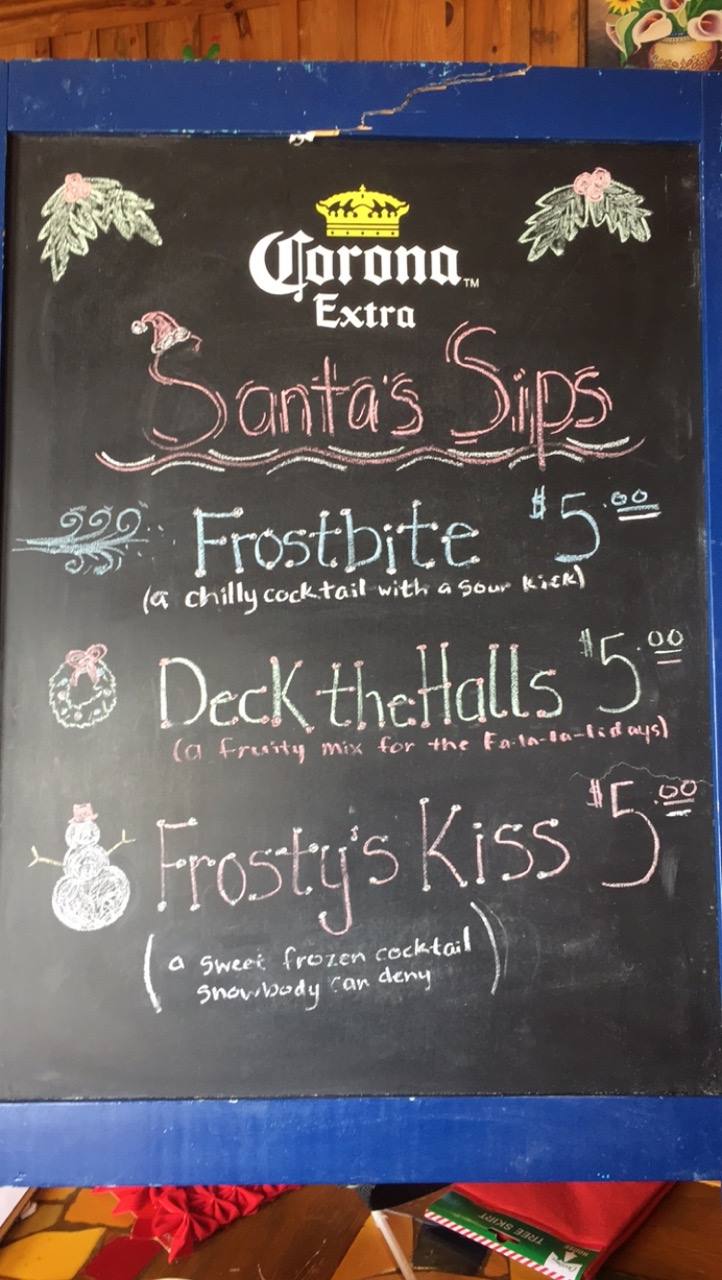 Corona™
Extra
Santa's Sips
Frostbite $5.00
(a chilly cocktail with a sour kick)
Deck the Halls $5.00
(a fruity mix for the Fa-la-la-lidays)
Frosty's Kiss $5.00
(a sweet frozen cocktail
snowbody can deny)
TREE SKIRT